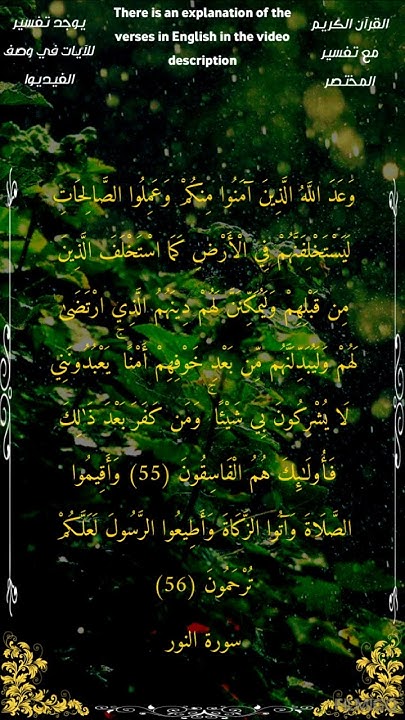 القرآن الكريم
مع تفسير
المختصر
There is an explanation of the
verses in English in the video
description
يوجد تفسير
للآيات في وصف
الفيديوا
وَعَدَ اللَّهُ الَّذِينَ آمَنُوا مِنكُمْ وَعَمِلُوا الصَّالِحَاتِ
لَيَسْتَخْلِفَنَّهُمْ فِي الْأَرْضِ كَمَا اسْتَخْلَفَ الَّذِينَ
مِن قَبْلِهِمْ وَلَيُمَكِّنَنَّ لَهُمْ دِينَهُمُ الَّذِي ارْتَضَىٰ
لَهُمْ وَلَيُبَدِّلَنَّهُم مِّن بَعْدِ خَوْفِهِمْ أَمْنًا ۚ يَعْبُدُونَنِي
لَا يُشْرِكُونَ بِي شَيْئًا ۚ وَمَن كَفَرَ بَعْدَ ذَٰلِكَ
فَأُولَٰئِكَ هُمُ الْفَاسِقُونَ (55) وَأَقِيمُوا
الصَّلَاةَ وَآتُوا الزَّكَاةَ وَأَطِيعُوا الرَّسُولَ لَعَلَّكُمْ
تُرْحَمُونَ (56)
سورة النور